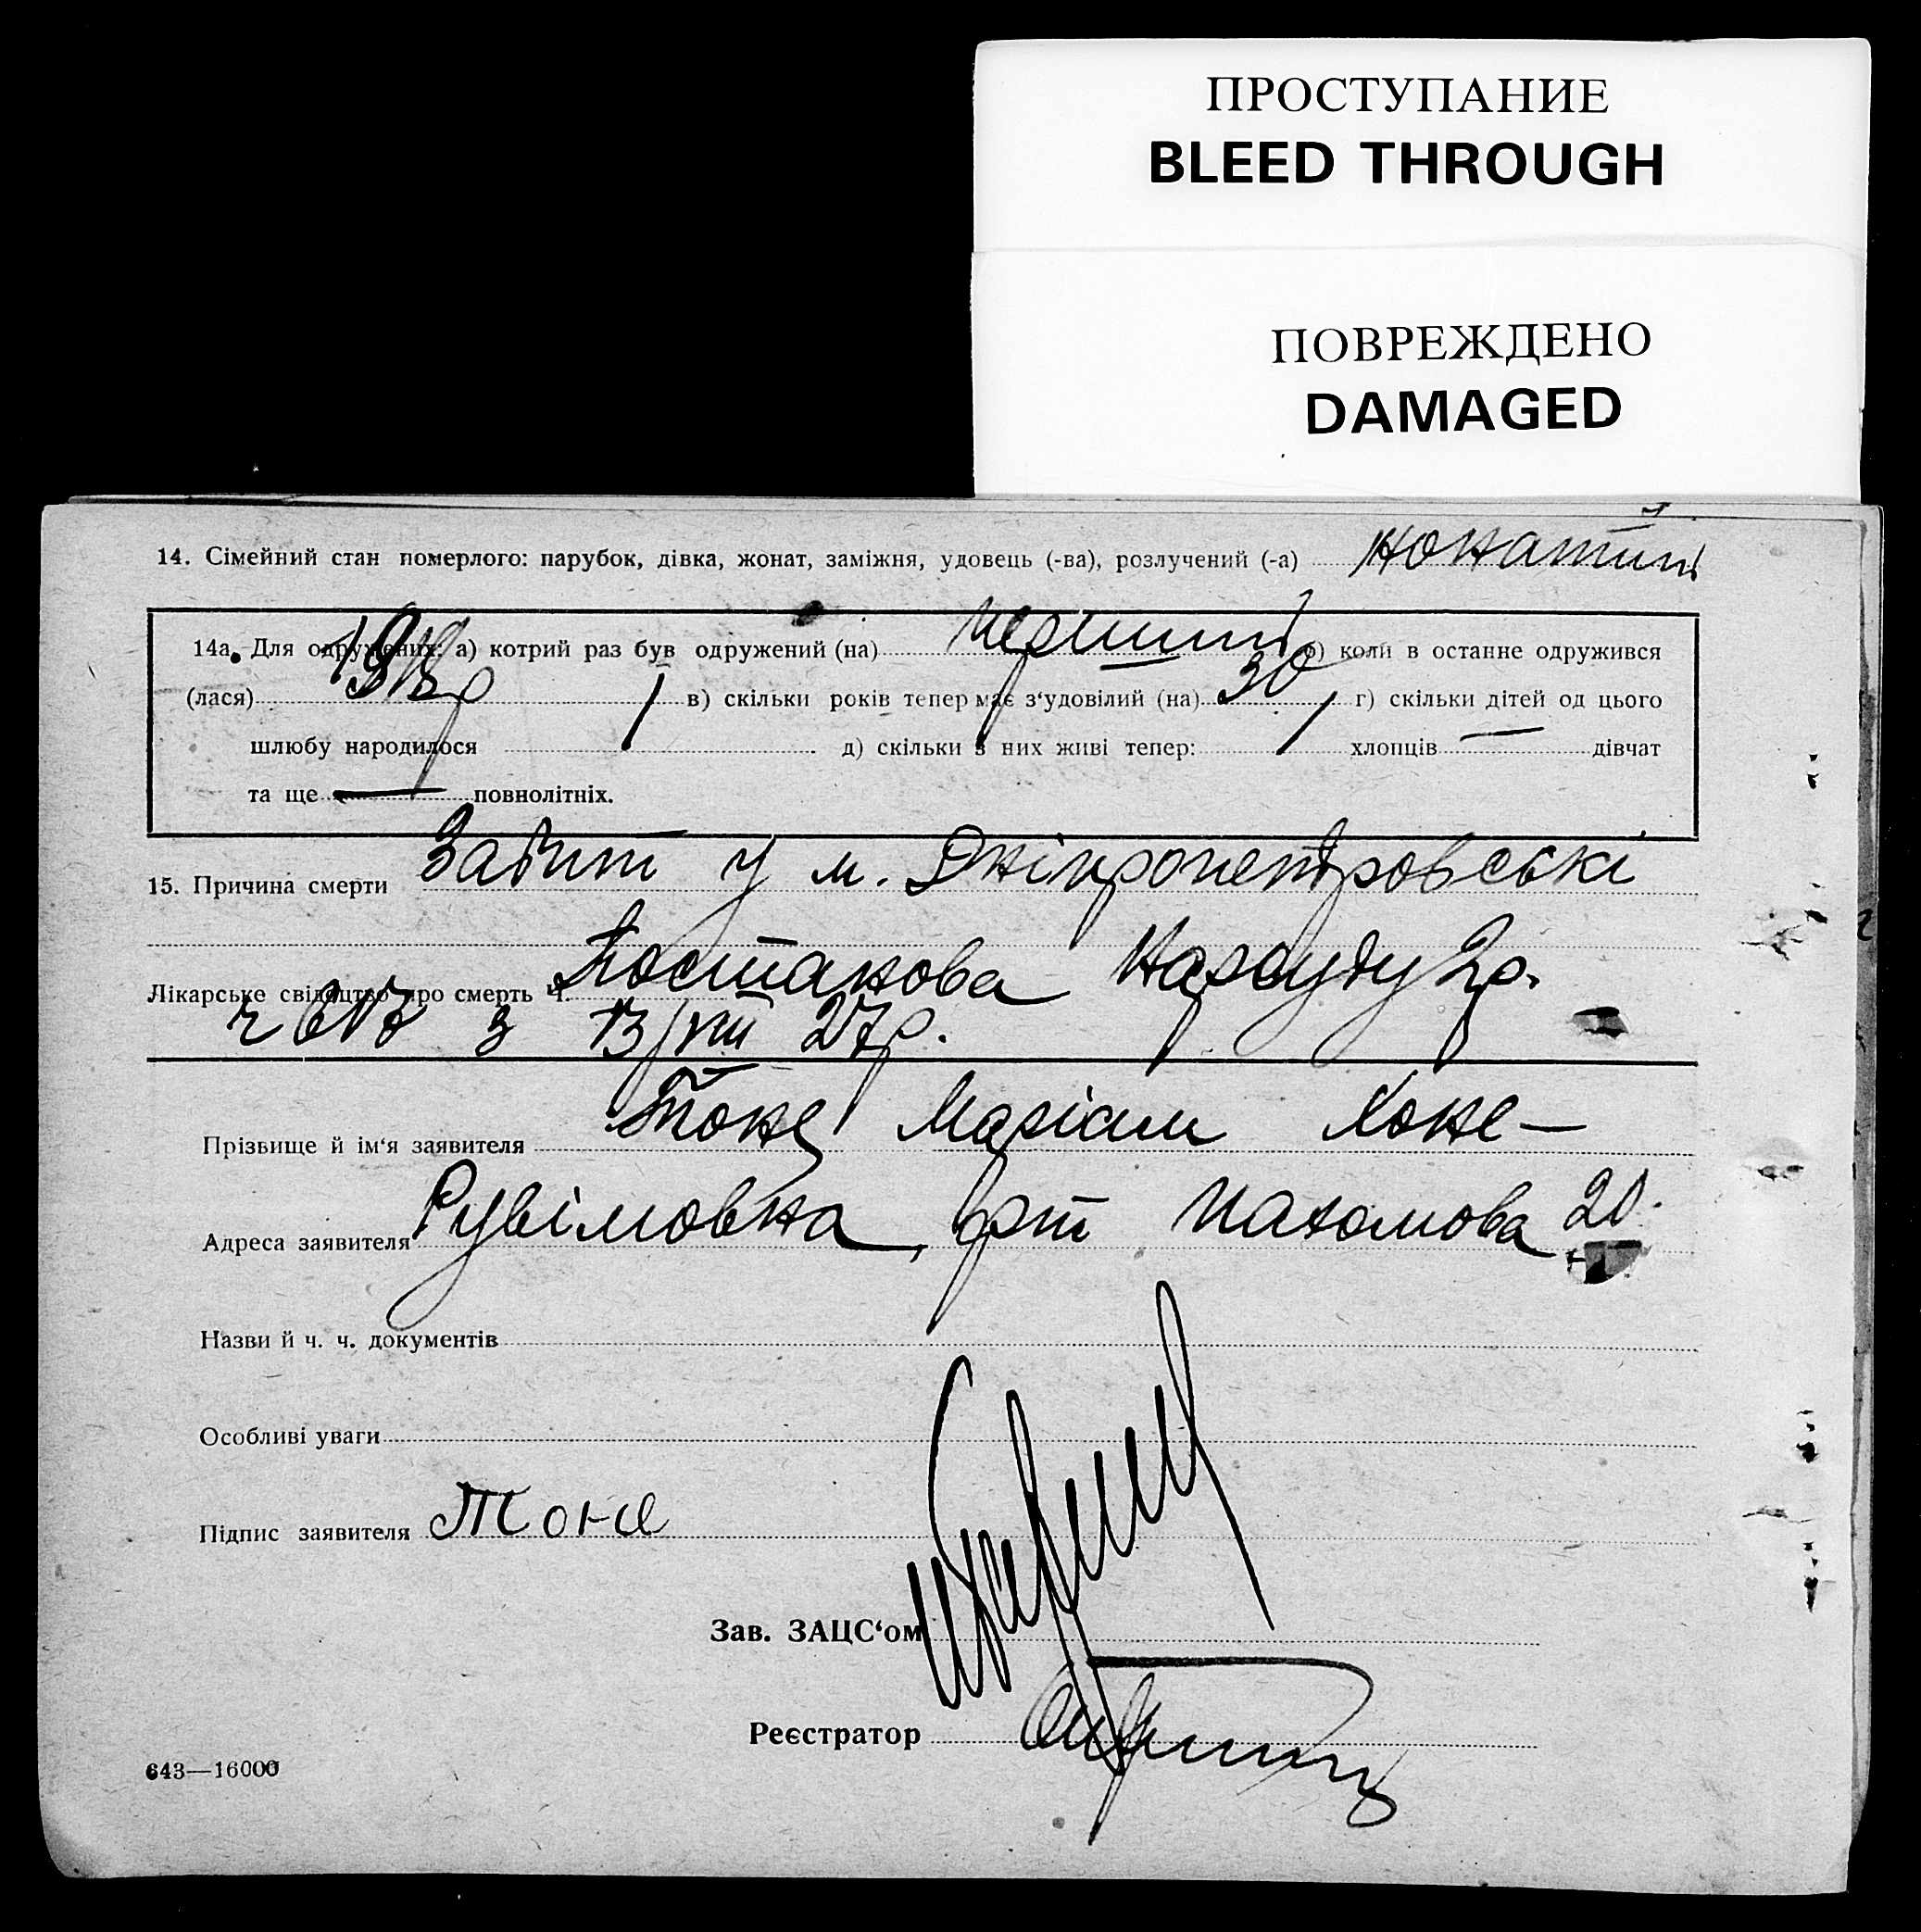 ПРОСТУПАНИЕ
BLEED THROUGH
ПОВРЕЖДЕНО
DAMAGED
14. Сімейний стан померлого: парубок, дівка, жонат, заміжня, удовець (-ва), розлучений (-а) жонатий
14а. Для одружених: а) котрий раз був одружений (на) перший б) коли в останне одружився
(лася) в) скільки років тепер має з'удовілий (на) 30 г) скільки дітей од цього
шлюбу народилося 1 д) скільки з них живі тепер: 1 хлопців — дівчат
та ще — повнолітніх.
15. Причина смерти Забит у м. Дніпропетровські
Лікарське свідоцтво про смерть Ч. Постанова Нарсуду 2р.
з 13/VIII 27р.
Прізвище й ім'я заявителя Тоне Маріам Хоне-
Адреса заявителя Рувімовна, 20.
Назви й ч. ч. документів
Особливі уваги
Підпис заявителя Тоне
Зав. ЗАЦС'ом
Реєстратор
643—16000